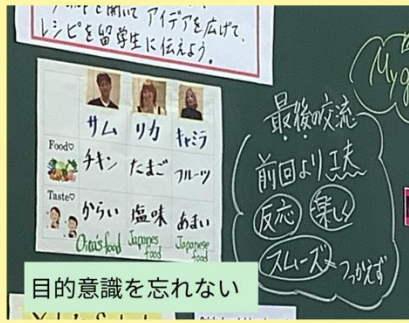 アイデアを広げて、
レシピを留学生に伝えよう。
サム リカ キャミラ
Food♡ チキン たまご フルーツ
Taste♡ からい 塩味 あまい
food Japanes food Japanese food
最後の交流
前回より工夫
反応 楽しく
スムーズ つっかえず
My
目的意識を忘れない